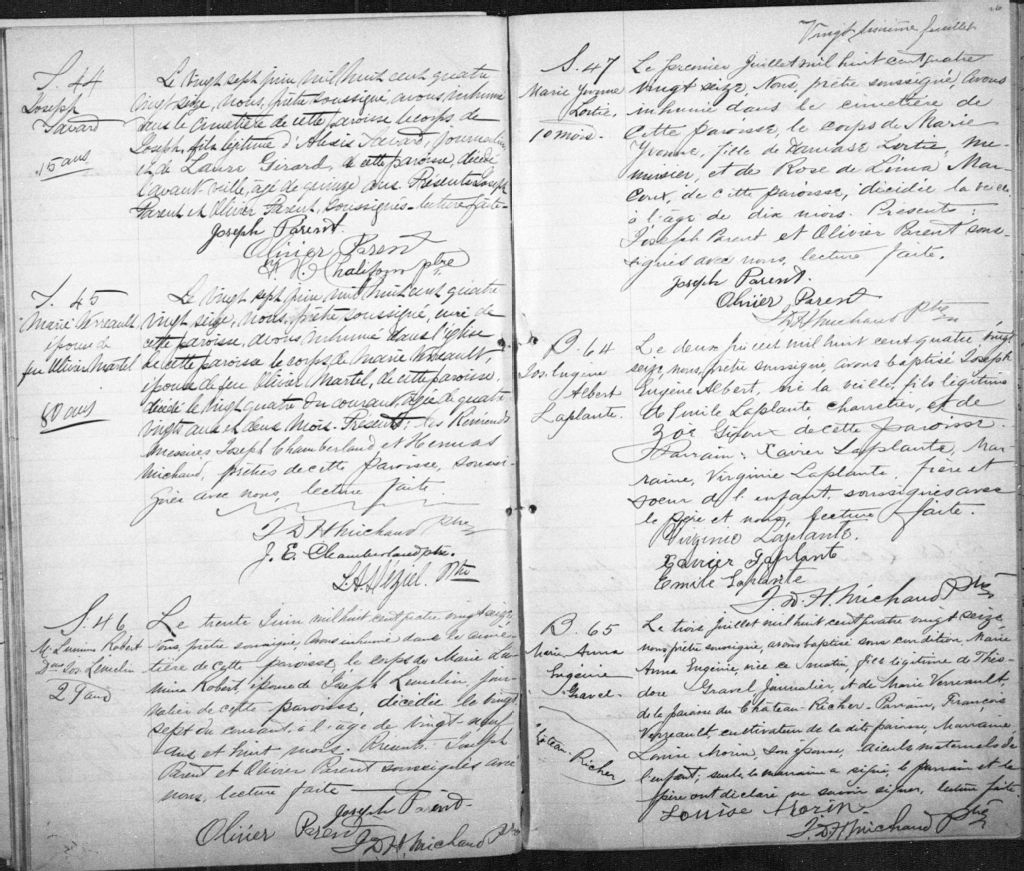 S. 44
Joseph
Savard
15 ans
Le vingt sept juin mil huit cent quatre
vingt seize, nous, prêtre soussigné, avons inhumé
dans le cimetière de cette paroisse le corps de
Joseph, fils légitime d'Alexis Savard, journalier
et de Laure Girard, de cette paroisse, décédé
l'avant veille, âgé de quinze ans. Présents Joseph
Parent et Olivier Parent, soussignés. lecture faite.
Joseph Parent.
Olivier Parent
ptre
S. 45
Marie Verreault
épouse de
feu Olivier Martel
80 ans
Le vingt sept juin mil huit cent quatre
vingt seize, nous, prêtre soussigné, curé de
cette paroisse, avons inhumé dans l'église
de cette paroisse le corps de Marie Verreault
épouse de feu Olivier Martel, de cette paroisse,
décédée le vingt quatre du courant, âgée de quatre
vingts ans et deux mois. Présents: les Révérends
messires Joseph Chamberland et Hermas
Michaud, prêtres de cette paroisse, soussi-
gnés avec nous, lecture faite.
J D H Michaud ptre
J. E. Chamberland ptre.
Ptre
S. 46
Robert
Jos Lemelin
29 ans
Le trente Juin mil huit cent quatre vingt seize,
Nous, prêtre soussigné, avons inhumé dans le cime-
tière de cette paroisse, le corps de Marie
Robert, épouse de Joseph Lemelin, jour-
nalier de cette paroisse, décédée le vingt
sept du courant, à l'âge de vingt neuf
ans et huit mois. Présents: Joseph
Parent et Olivier Parent soussignés avec
nous, lecture faite
Joseph Parent.
Olivier Parent
J D H Michaud ptre
Vingt sixième feuillet
S. 47
Marie Yvonne
Lortie.
10 mois.
Le premier Juillet mil huit cent quatre
vingt seize, Nous, prêtre soussigné, avons
inhumé dans le cimetière de
cette paroisse, le corps de Marie
Yvonne, fille de Damase Lortie, me-
nuisier, et de Rose de Lima Mar-
coux, de cette paroisse, décédée la veille
à l'âge de dix mois. Présents:
Joseph Parent et Olivier Parent sous-
signés avec nous, lecture faite.
Joseph Parent.
Olivier Parent
J D H Michaud ptre
B. 64
Jos. Eugène
Albert
Laplante.
Le deux juillet mil huit cent quatre vingt
seize, nous, prêtre soussigné, avons baptisé Joseph
Eugène Albert, né la veille, fils légitime
d'Emile Laplante charretier, et de
Zoé Giroux de cette paroisse.
Parrain: Xavier Laplante, Mar-
raine, Virginie Laplante, frère et
soeur de l'enfant, soussignés avec
le père et nous, lecture faite.
Virginie Laplante.
Xavier Laplante
Emile Laplante
J D H. Michaud ptre
B. 65
Marie Anna
Eugénie
Gravel.
Château-
Richer
Le trois Juillet mil huit cent quatre vingt seize
nous prêtre soussigné, avons baptisé sous condition Marie
Anna Eugénie, née ce matin, fille légitime de Théo-
dore Gravel journalier, et de Marie Verreault,
de la paroisse du Château-Richer. Parrain, François
Verreault, cultivateur de la dite paroisse, Marraine
Louise Morin, son épouse, aieuls maternels de
l'enfant; seule la marraine a signé, le parrain et le
père ont déclaré ne savoir signer, lecture faite.
Louise Morin
J. D H Michaud ptre